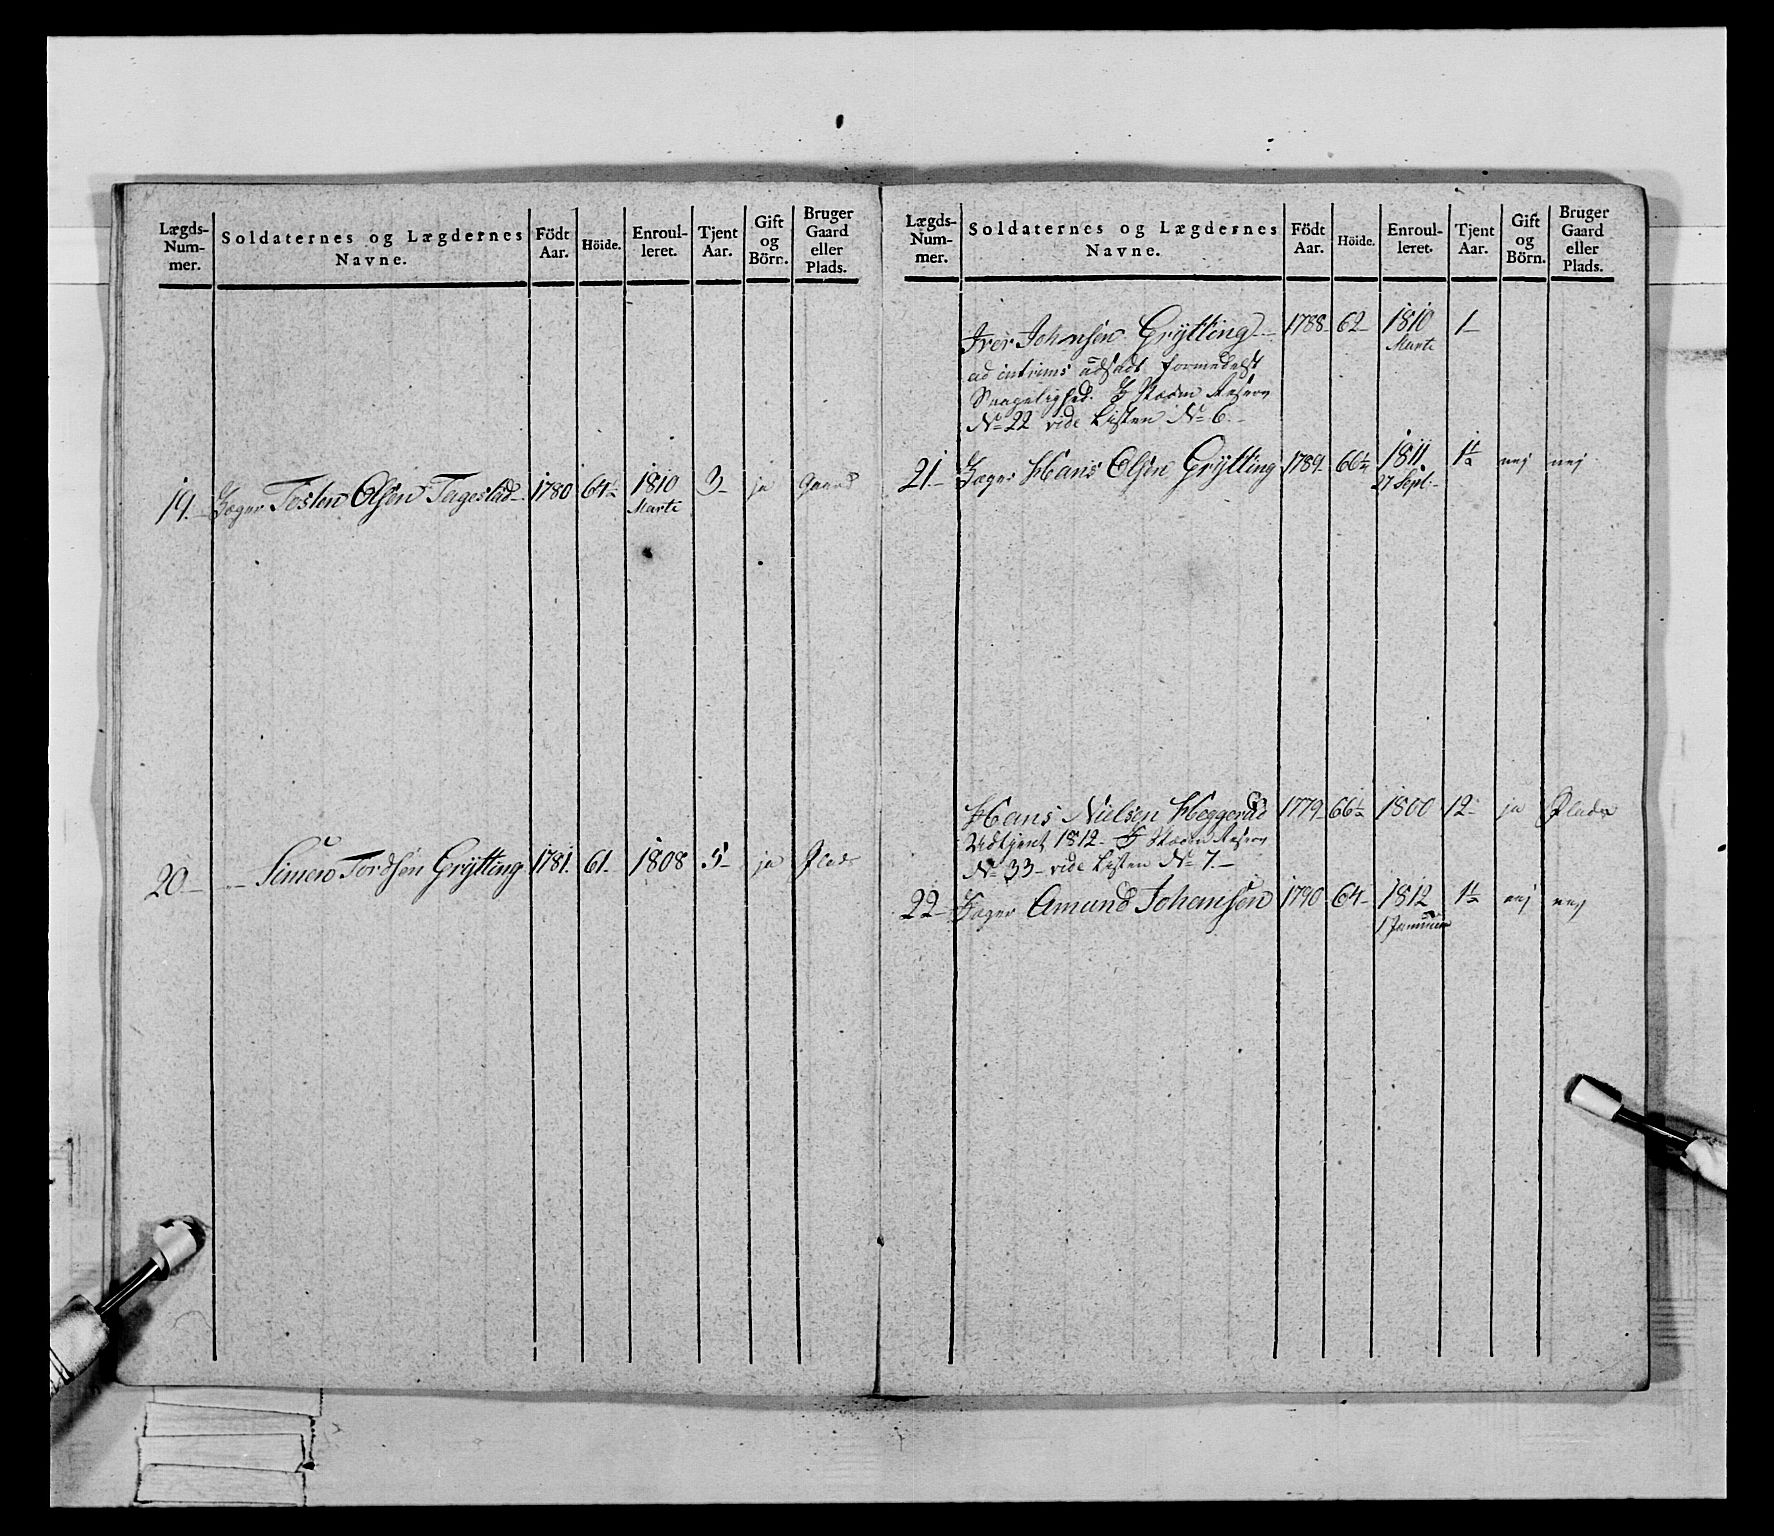 Lægds-Num-mer. Soldaternes og Lægdernes Navne. Födt Aar. Höide. Enroul-leret. Tjent Aar. Gift og Börn. Bruger Gaard eller Plads.
19. Jæger Tosten Olsen Tagestad 1780 64½ 1810 3 ja Gaard
Marti
20 Simen Tordsen Grÿtting 1781. 61. 1808 5 ja Plads
Lægds-Num-mer. Soldaternes og Lægdernes Navne. Födt Aar. Höide. Enroul-leret. Tjent Aar. Gift og Börn. Bruger Gaard eller Plads.
Iver Johnsen Grÿtting 1788 62 1810 1
Marti
ad intrims udsadt formedelst
Svagelighed.
No 22 vide Listen No 6.
21. Jæger Hans Olsen Grÿtting 1789 66½ 1811 1½ nej nej
27 Sept:
Hans Nielsen Heggerud 1779 66½ 1800 12 ja Plads
Udtjent 1812
No 33 vide Listen No 7.
22 Jæger Amund Johansen 1790 64 1812 1½ nej nej
1 Januar